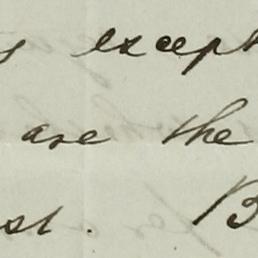 except
are the
st. B